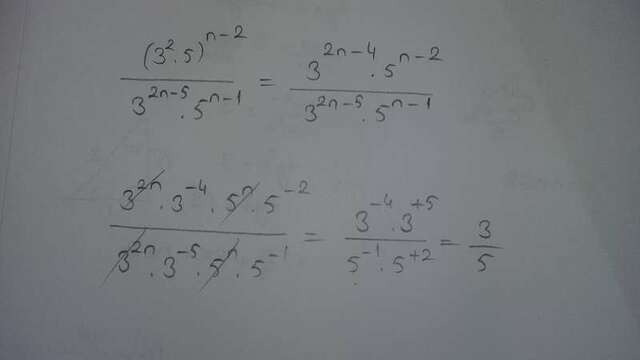 (3²·5)ⁿ⁻² / 3²ⁿ⁻⁵·5ⁿ⁻¹ = 3²ⁿ⁻⁴·5ⁿ⁻² / 3²ⁿ⁻⁵·5ⁿ⁻¹
3²ⁿ·3⁻⁴·5ⁿ·5⁻² / 3²ⁿ·3⁻⁵·5ⁿ·5⁻¹ = 3⁻⁴·3⁺⁵ / 5⁻¹·5⁺² = 3 / 5